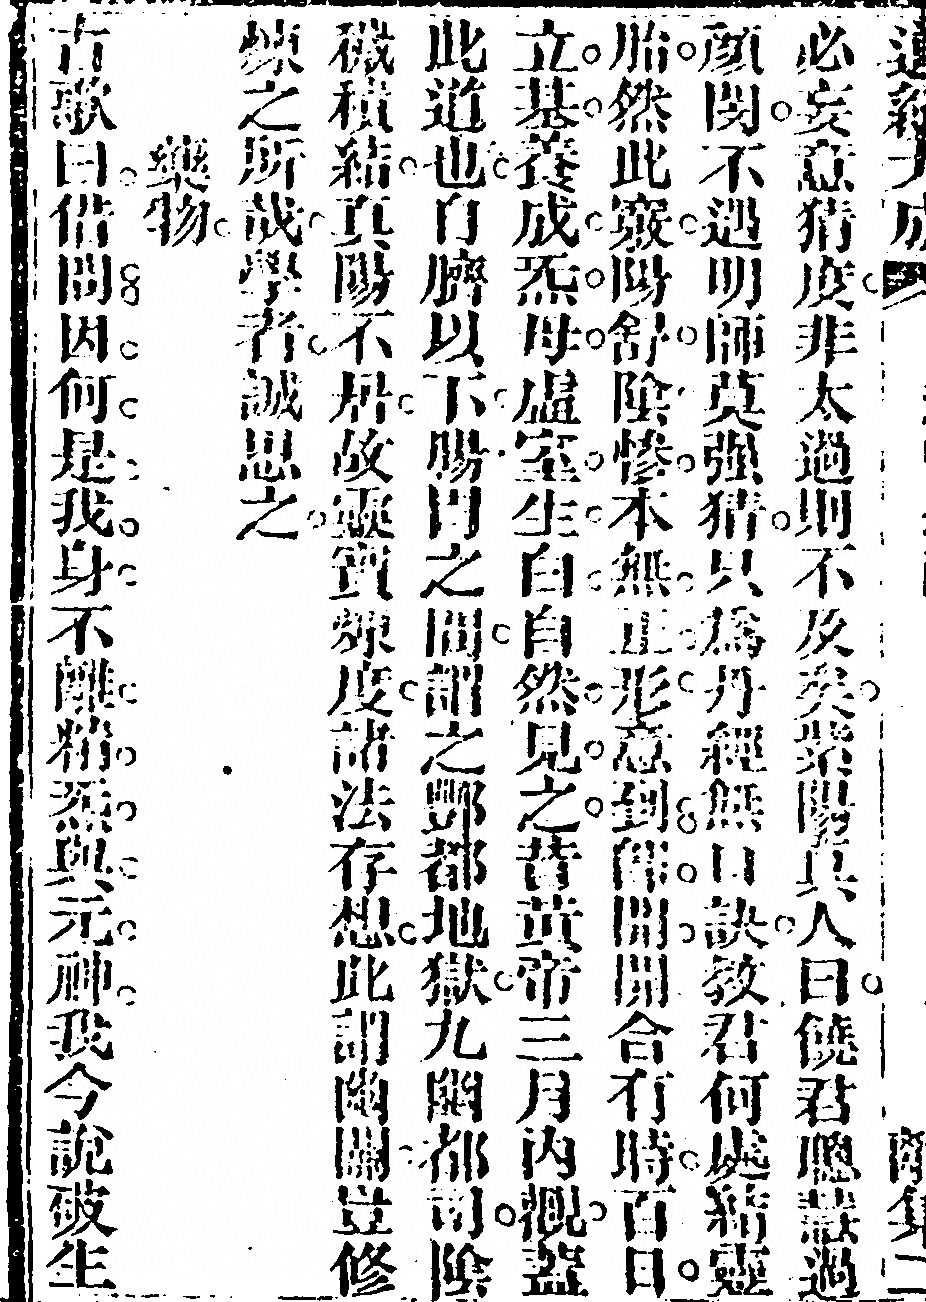 必妄意猜度非太過則不及矣紫陽眞人曰饒君聰慧過
顔閔不遇明師莫强猜只爲丹經無口訣教君何處結靈
胎然此竅陽舒陰慘本無正形意到卽開開合有時百日
立基養成炁母虛室生白自然見之昔黃帝三月内觀蓋
此道也自臍以下腸胃之間謂之酆都地獄九幽都司陰
穢積結眞陽不居故靈寶煉度諸法存想此謂幽關豈修
煉之所哉學者誠思之
藥物
古歌曰借問因何是我身不離精炁與元神我今說破生